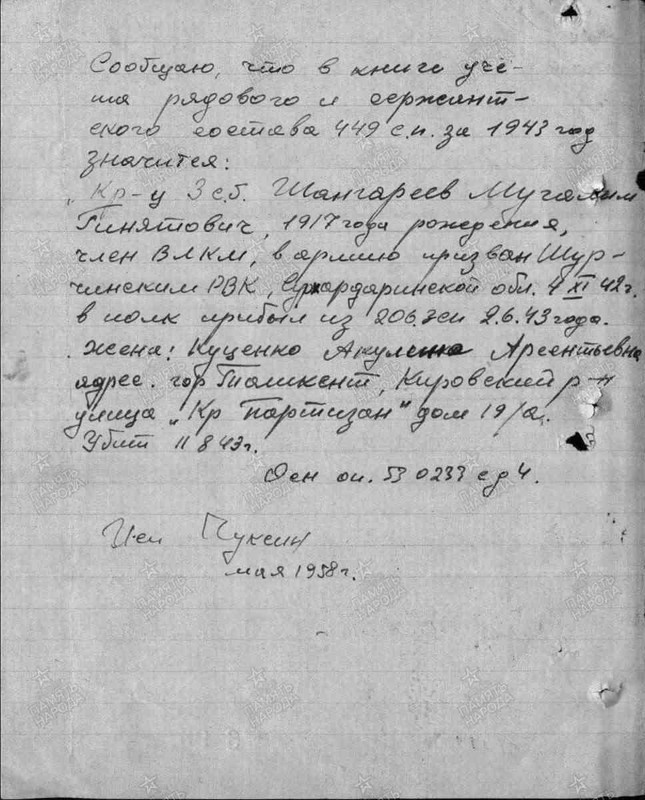 Сообщаю, что в книге уче-
та рядового и сержант-
ского состава 449 с.п. за 1943 год
значится:
„Кр-ц 3 сб. Шангареев Мугалим
Гинятович, 1917 года рождения,
член ВЛКМ, в армию призван Шур-
чинским РВК, Сурхардаринской обл. 4 XI 42 г.
в полк прибыл из 206 зсп 2.6.43 года.
Жена: Куценко Акулина Арсентьевна
адрес. гор Ташкент, Кировский р-н
улица „Кр Партизан" дом 19/а.
Убит 11 8 43 г.
Осн оп. 53 0233 с д 4.
Исп Пуксин
мая 1958 г.
ПАМЯТЬ НАРОДА